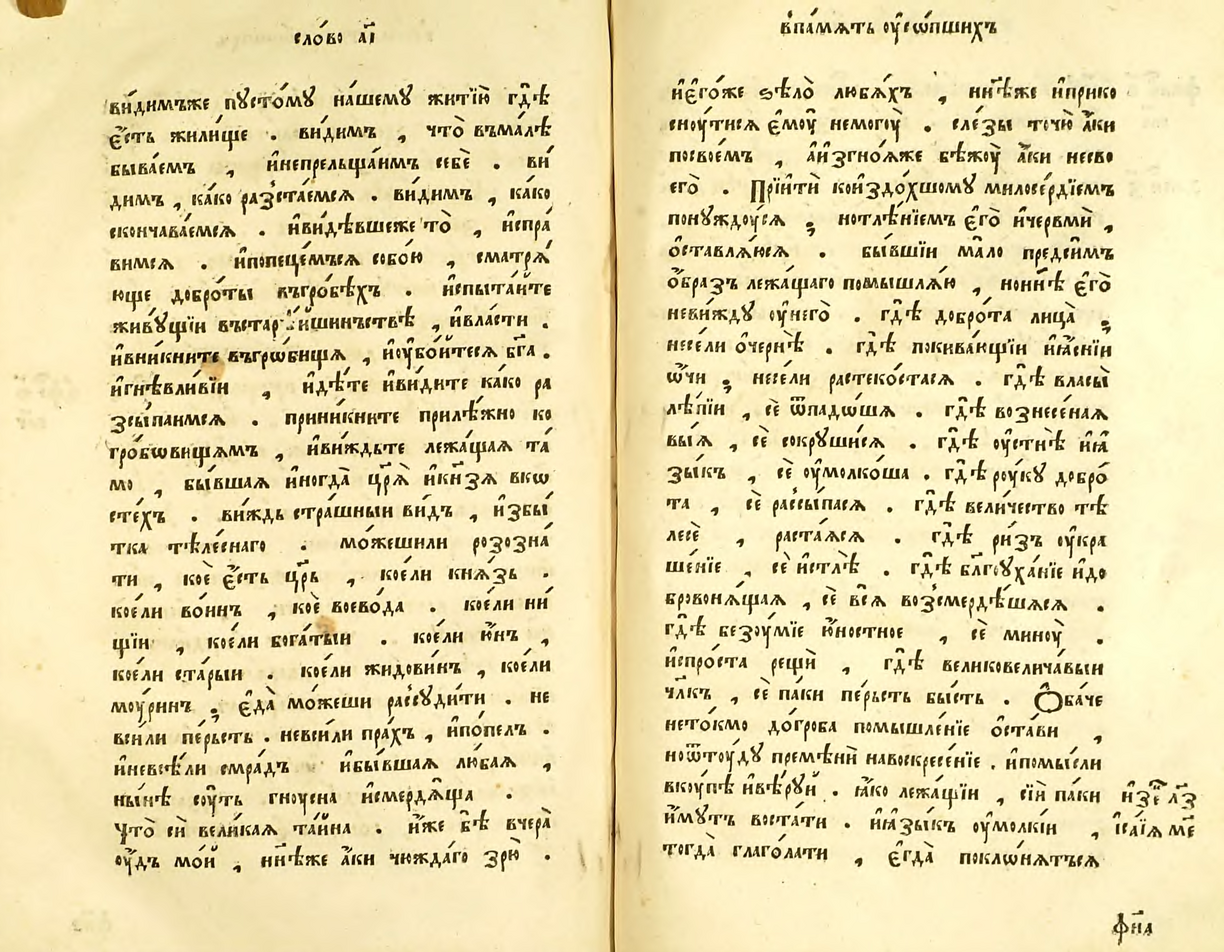 сло́во а҃і
ви́димъже пꙋсто́мꙋ на́шемꙋ житїю̀ гдѣ̀
є҆́сть жили́ще . ви́димъ , что̀ въма́лѣ
быва́емъ , и҆непрельща́имъ себѐ . ви́
димъ , ка́ко разста́емсѧ . ви́димъ , ка́ко
скончава́емсѧ . и҆ви́дѣвшеже то̀ , и҆спра́
вимсѧ . и҆попеце́мъсѧ собо́ю , сматрѧ́
юще добро́ты въгро́бѣхъ . и҆спыта́ите
живꙋ́щїи въстарѣ́ишинъствѣ , и҆вла́сти .
и҆вни́кните въгрѡ́бища , и҆оубо́итесѧ бг҃а .
и҆гнѣвли́вїи , и҆дѣ́те и҆ви́дите ка́ко ра
зсы́паимсѧ . прини́кните прилѣ́жно ко
гробѡви́щѧмъ , и҆ви́ждьте лежа́щаѧ та́
мо , бы́вшаѧ и҆ногда̀ цр҃ѧ̀ и҆кн҃зѧ вкѡ
сте́хъ . ви́ждь стра́шныи ви́дъ , и҆збы́
тка тѣле́снаго . мо́жешили розозна́
ти , коѐ є҆́сть цр҃ь , ко́ели кнѧ́зь .
ко́ели во́инъ , коѐ воево́да . ко́ели ни́
щїи , ко́ели бога́тыи . ко́ели ю҆́нъ ,
ко́ели ста́рыи . ко́ели жидови́нъ , ко́ели
моу́ринъ ; є҆да̀ мо́жеши рассꙋди́ти . не
вси́ли пе́рьсть . невси́ли пра́хъ , и҆по́пелъ .
и҆невсѣ́ли смра́дъ и҆бы́вшаѧ лю́баѧ ,
ны́нѣ соу́ть гноу́сна и҆смердѧ́ща .
Что̀ сѝ вели́каѧ та́ина . и҆́же бѣ̀ вчера̀
оу҆́дъ мо́и , нн҃ѣже а҆́ки чюжда́го зрю̀ .
впа́мѧть оу҆со́пшихъ
и҆є҆го́же ѕѣло̀ любѧ́хъ , нн҃ѣже и҆прико
сноу́тисѧ є҆моу̀ немогоу̀ . сле́зы точю̀ а҆́ки
посвое́мъ , а҆и҆згно́ѧже бѣжоу̀ а҆́ки несво
его̀ . Прїи́ти коиздо́хшомꙋ милосе́рдїемъ
понꙋждоу́сѧ ; нотлѣ́нїемъ є҆го̀ и҆червми́ ,
ѡ҆ставлѧ́юсѧ . бы́вшїи ма́ло предси́мъ
ѻ҆́бразъ лежа́щаго помышлѧ́ю , нонн҃ѣ є҆го̀
неви́ждꙋ оу҆него̀ . гдѣ̀ добро́та лица̀ ;
несели ѻ҆чернѣ̀ . гдѣ̀ покива́ющїи и҆ꙗ҆́снїи
ѻ҆́чи ; несели растеко́стасѧ . гдѣ̀ власы̀
лѣ́пїи , сѐ ѿпадо́шѧ . гдѣ̀ вознесе́наѧ
вы́ѧ , сѐ сокрꙋши́сѧ . гдѣ̀ оу҆стнѣ̀ и҆ꙗ҆
зы́къ , сѐ оу҆молко́ша . гдѣ̀ роукꙋ̀ добро́
та , сѐ рассы́пасѧ . гдѣ̀ вели́чество тѣ
лесѐ , раста́ѧсѧ . гдѣ̀ ри́зъ оу҆кра
ше́нїе , сѐ и҆стлѣ̀ . гдѣ̀ бл҃гоуха́нїе и҆до
бровонѧ́щаѧ , сѐ всѧ̀ возсмердѣ́шѧсѧ .
гдѣ̀ безоу́мїе ю҆́ностное , сѐ миноу̀ .
и҆спро́ста рещѝ , гдѣ̀ великовелича́выи
чл҃къ , сѐ па́ки пе́рьсть бы́сть . Ѻ҆ба́че
нето́кмо до́гроба помышле́нїе ѻ҆ста́ви ,
ноѿтоу́дꙋ премѣнѝ навоскресе́нїе . и҆помы́сли
вкоу́пѣ и҆вѣ́рꙋи . ꙗ҆́ко лежа́щїи , сїѝ па́ки
и҆́мꙋтъ воста́ти . и҆ꙗ҆зы́къ оу҆мо́лкїи ,
тогда̀ глаго́лати , є҆гда̀ поклѡ́нѧтъсѧ
и҆саі́ѧ мѕ҃
фн҃а